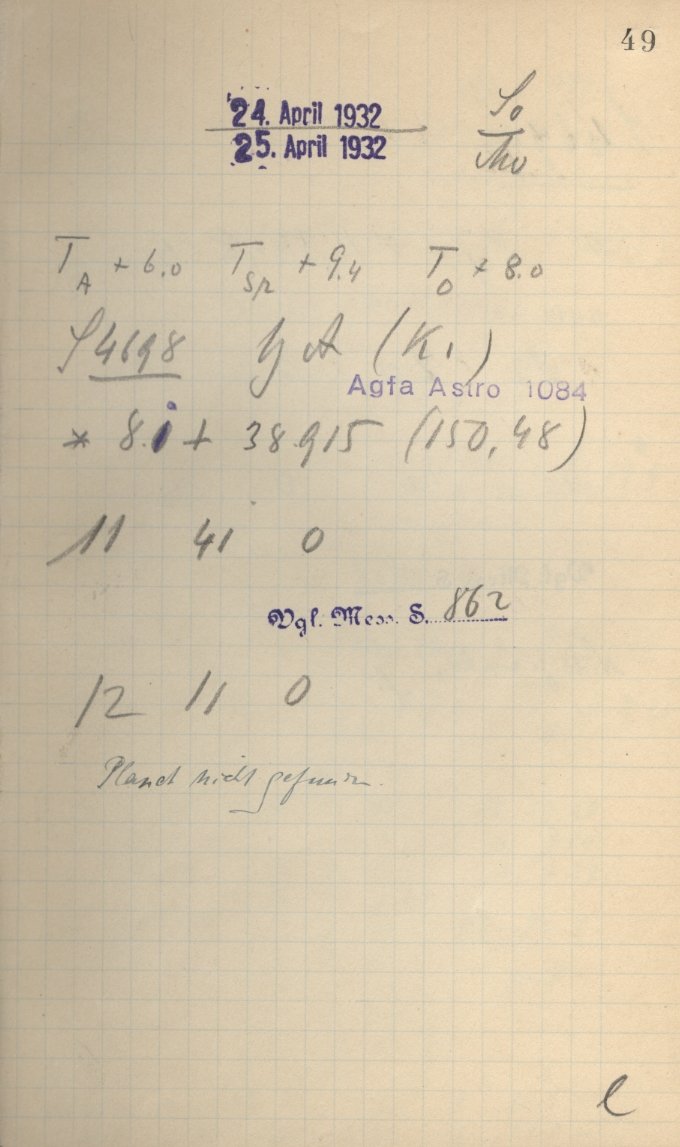 49
24. April 1932
25. April 1932
So
Mo
T_A + 6.0 T_Sp + 9.4 T_O + 8.0
4698 (K.)
Agfa Astro 1084
* 8. + 38 915 (150,48)
11 41 0
Vgl. Mess. S. 862
12 11 0
Planet nicht gefunden.